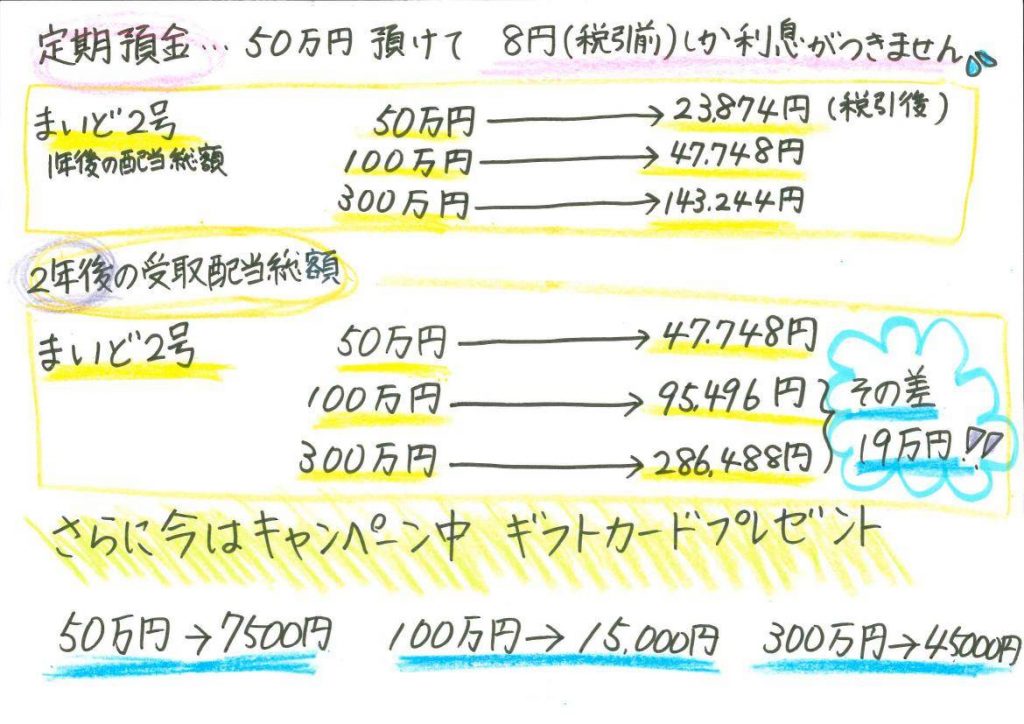 定期預金… 50万円 預けて 8円(税引前)しか利息がつきません
まいど2号 50万円 → 23,874円 (税引後)
1年後の配当総額 100万円 → 47.748円
300万円 → 143.244円
2年後の受取配当総額
まいど2号 50万円 → 47.748円
100万円 → 95,496円 その差
300万円 → 286,488円 19万円!!
さらに今はキャンペーン中 ギフトカードプレゼント
50万円→7500円 100万円→15,000円 300万円→45000円